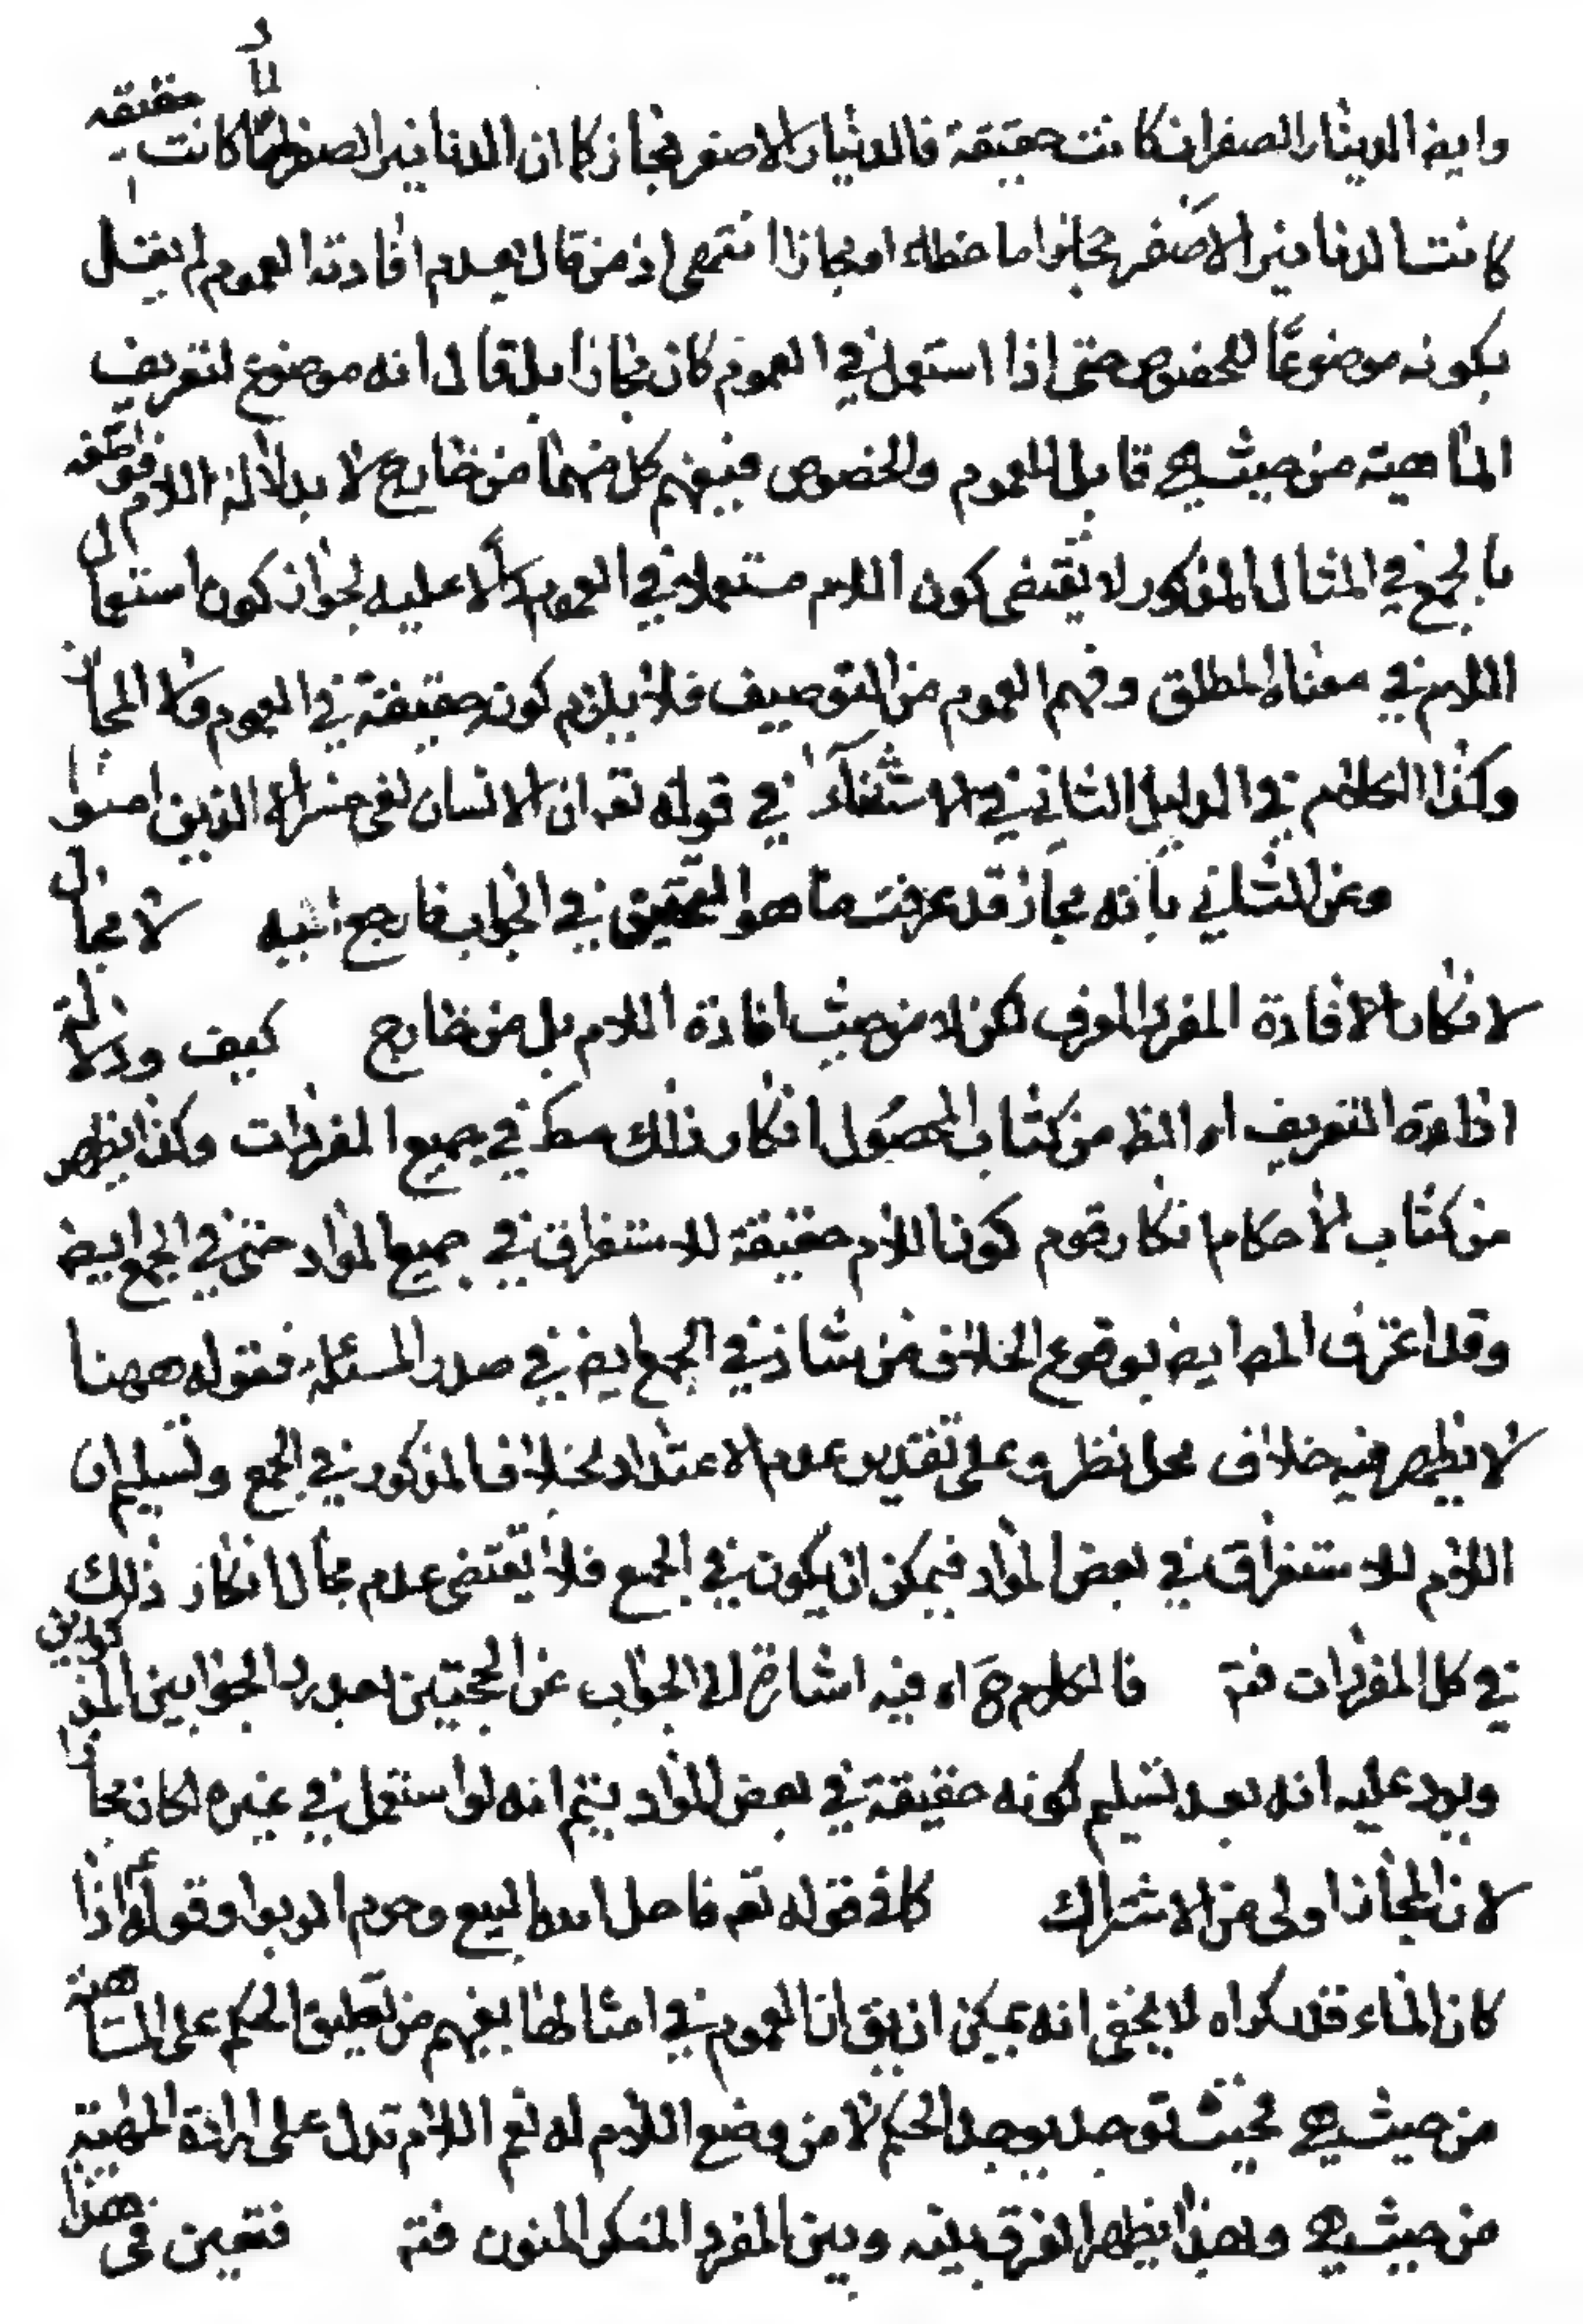 وايضا الدينار الصفر ان كانت حقيقة فالدينار الاصفر مجاز كما ان الدنانير الصفر لما كانت حقيقة
كانت الدنانير الاصفر مجازا اما خطاء او مجازا انتهى اذ من قال بعدم افادته العموم لم يقل
بكونه موضوعًا للخصوص حتى اذا استعمل في العموم كان مجازا بل قال انه موضوع لتعريف
الماهية من حيث هي قابل للعموم والخصوص فيفهم كل منهما من خارج لا بدلالة اللام فوصفه
بالجمع في المثال المذكور لا يقتضى كون اللام مستعملا في العموم دالا عليه لجواز كون استعمال
اللام في معناه المطلق وفهم العموم من التوصيف فلا يلزم كونه حقيقة في العموم ولا المجاز
وكذا الكلام في الدليل الثاني في الاستثناء في قوله تعـ ان الانسان لفى خسر الا الذين امنوا
وعن الثاني بانه مجاز قد عرفت ما هو التحقيق في الجواب فارجع اليه لا مجال
لانكار الافادة المفرد المعرف لكن لا من حيث افادة اللام بل من خارج كيف ودلالة
اداة التعريف اه الظ من كتاب المحصول انكار ذلك مط في جميع المفردات وكذا يظهر
من كتاب الاحكام انكار قوم كون اللام حقيقة للاستغراق في جميع المواد حتى في الجمع ايضا
وقد اعترف المص ايضا بوقوع الخلاف من شاذ في الجمع ايضا في صدر المسئلة فقوله ههنا
لا يظهر فيه خلاف محل نظر وعلى تقدير عدم الاعتداد بخلاف المذكور في الجمع وتسليم ان
اللام للاستغراق في بعض المواد فيمكن ان يكون في الجمع فلا يقتضى عدم مجال انكار ذلك
في كل المفردات فتم فالكلام ح اه فيه اشارة الى الجواب عن الحجتين بعد رد الجوابين المذكورين
ويرد عليه انه بعد تسليم كونه حقيقة في بعض المواد يتم انه لو استعمل في غيره لكان مجازا
لان المجاز اولى من الاشتراك كما في قوله تعـ فاحل الله البيع وحرم الربوا وقوله ع اذا
كان الماء قدر كر اه لا يخفى انه يمكن ان يق ان العموم في امثالها يفهم من تعليق الحكم على الماهية
من حيث هي فحيث توجد يوجد الحكم لا من وضع اللام له نعم اللام تدل على ارادة المهية
من حيث هي وبهذا يظهر الفرق بينه وبين المفرد المنكر المنون فتم فتعين في هذا